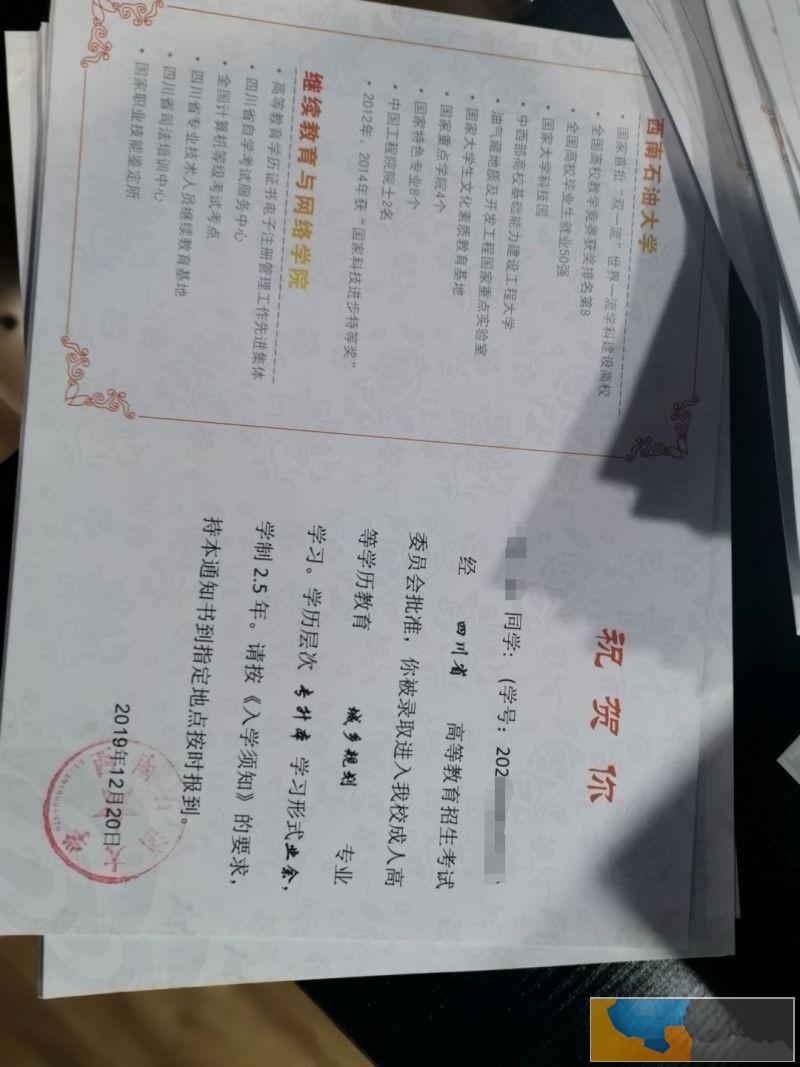 西南石油大学
• 国家首批“双一流”世界一流学科建设高校
• 全国高校教学竞赛获奖排名第8
• 全国高校毕业生就业50强
• 国家大学科技园
• 中西部高校基础能力建设工程大学
• 油气藏地质及开发工程国家重点实验室
• 国家大学生文化素质教育基地
• 国家重点学院4个
• 国家特色专业8个
• 中国工程院院士2名
• 2012年、2014年获“国家科技进步特等奖”
继续教育与网络学院
• 高等教育学历证书电子注册管理工作先进集体
• 四川省自学考试服务中心
• 全国计算机等级考试考点
• 四川省专业技术人员继续教育基地
• 四川省司法培训中心
• 国家职业技能鉴定所
祝贺你
同学：（学号：202
经 四川省 高等教育招生考试
委员会批准，你被录取进入我校成人高
等学历教育 城乡规划 专业
学习。学历层次 专升本 学习形式业余，
学制 2.5 年。请按《入学须知》的要求，
持本通知书到指定地点按时报到。
2019年12月20日